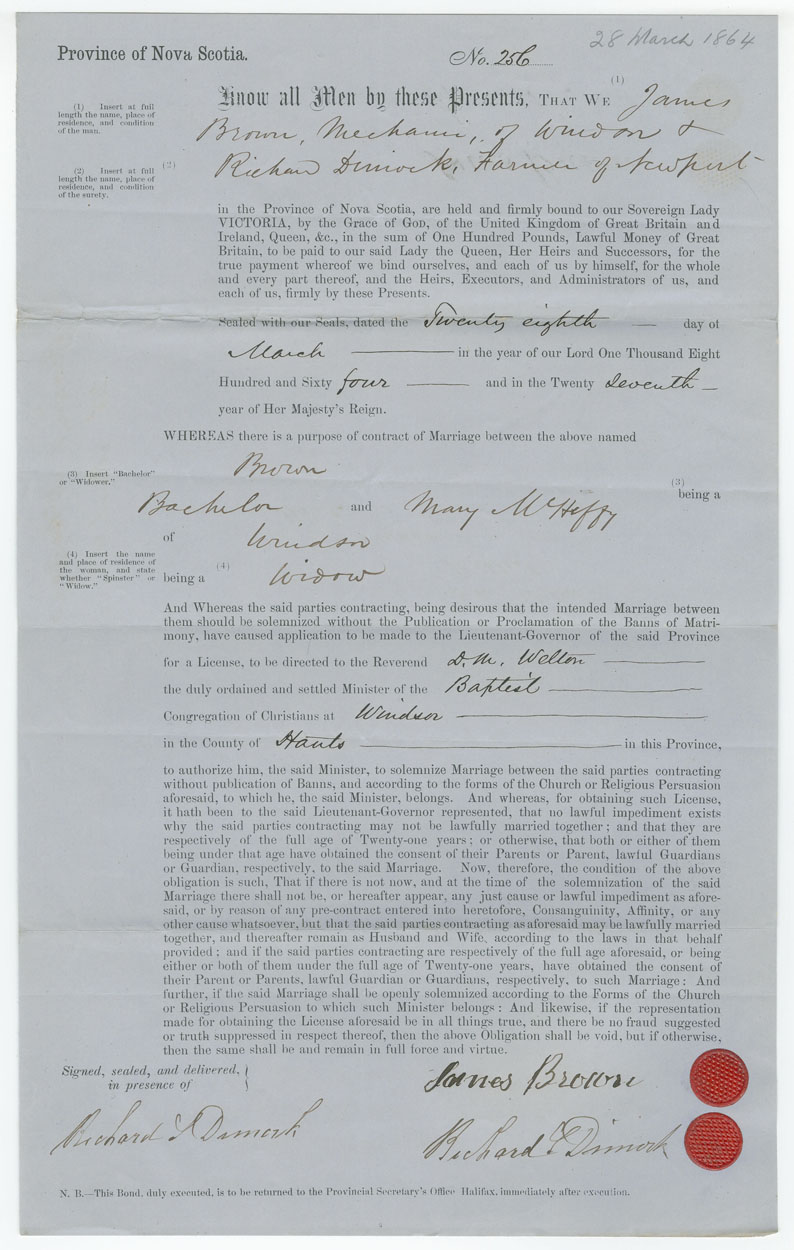 28 March 1864
Province of Nova Scotia.
No. 256
Know all Men by these Presents, THAT WE (1) James
(1) Insert at full length the name, place of residence, and condition of the man.
Brown, Mechanic, of Windsor &
(2) Insert at full length the name, place of residence, and condition of the surety.
(2) Richard Dimock, Farmer of Newport
in the Province of Nova Scotia, are held and firmly bound to our Sovereign Lady
VICTORIA, by the Grace of GOD, of the United Kingdom of Great Britain and
Ireland, Queen, &c., in the sum of One Hundred Pounds, Lawful Money of Great
Britain, to be paid to our said Lady the Queen, Her Heirs and Successors, for the
true payment whereof we bind ourselves, and each of us by himself, for the whole
and every part thereof, and the Heirs, Executors, and Administrators of us, and
each of us, firmly by these Presents.
Sealed with our Seals, dated the Twenty eighth — day of
March — in the year of our Lord One Thousand Eight
Hundred and Sixty four — and in the Twenty Seventh —
year of Her Majesty's Reign.
WHEREAS there is a purpose of contract of Marriage between the above named
(3) Insert "Bachelor" or "Widower."
Brown (3) being a
Bachelor and Mary McHeffy
of Windsor
(4) Insert the name and place of residence of the woman, and state whether "Spinster" or "Widow."
being a (4) Widow
And Whereas the said parties contracting, being desirous that the intended Marriage between
them should be solemnized without the Publication or Proclamation of the Banns of Matri-
mony, have caused application to be made to the Lieutenant-Governor of the said Province
for a License, to be directed to the Reverend D. M. Welton —
the duly ordained and settled Minister of the Baptist —
Congregation of Christians at Windsor —
in the County of Hants — in this Province,
to authorize him, the said Minister, to solemnize Marriage between the said parties contracting
without publication of Banns, and according to the forms of the Church or Religious Persuasion
aforesaid, to which he, the said Minister, belongs. And whereas, for obtaining such License,
it hath been to the said Lieutenant-Governor represented, that no lawful impediment exists
why the said parties contracting may not be lawfully married together; and that they are
respectively of the full age of Twenty-one years; or otherwise, that both or either of them
being under that age have obtained the consent of their Parents or Parent, lawful Guardians
or Guardian, respectively, to the said Marriage. Now, therefore, the condition of the above
obligation is such, That if there is not now, and at the time of the solemnization of the said
Marriage there shall not be, or hereafter appear, any just cause or lawful impediment as afore-
said, or by reason of any pre-contract entered into heretofore, Consanguinity, Affinity, or any
other cause whatsoever, but that the said parties contracting as aforesaid may be lawfully married
together, and thereafter remain as Husband and Wife, according to the laws in that behalf
provided; and if the said parties contracting are respectively of the full age aforesaid, or being
either or both of them under the full age of Twenty-one years, have obtained the consent of
their Parent or Parents, lawful Guardian or Guardians, respectively, to such Marriage: And
further, if the said Marriage shall be openly solemnized according to the Forms of the Church
or Religious Persuasion to which such Minister belongs: And likewise, if the representation
made for obtaining the License aforesaid be in all things true, and there be no fraud suggested
or truth suppressed in respect thereof, then the above Obligation shall be void, but if otherwise,
then the same shall be and remain in full force and virtue.
Signed, sealed, and delivered,
in presence of
James Brown
Richard Dimock
Richard Dimock
N. B.—This Bond, duly executed, is to be returned to the Provincial Secretary's Office Halifax, immediately after execution.